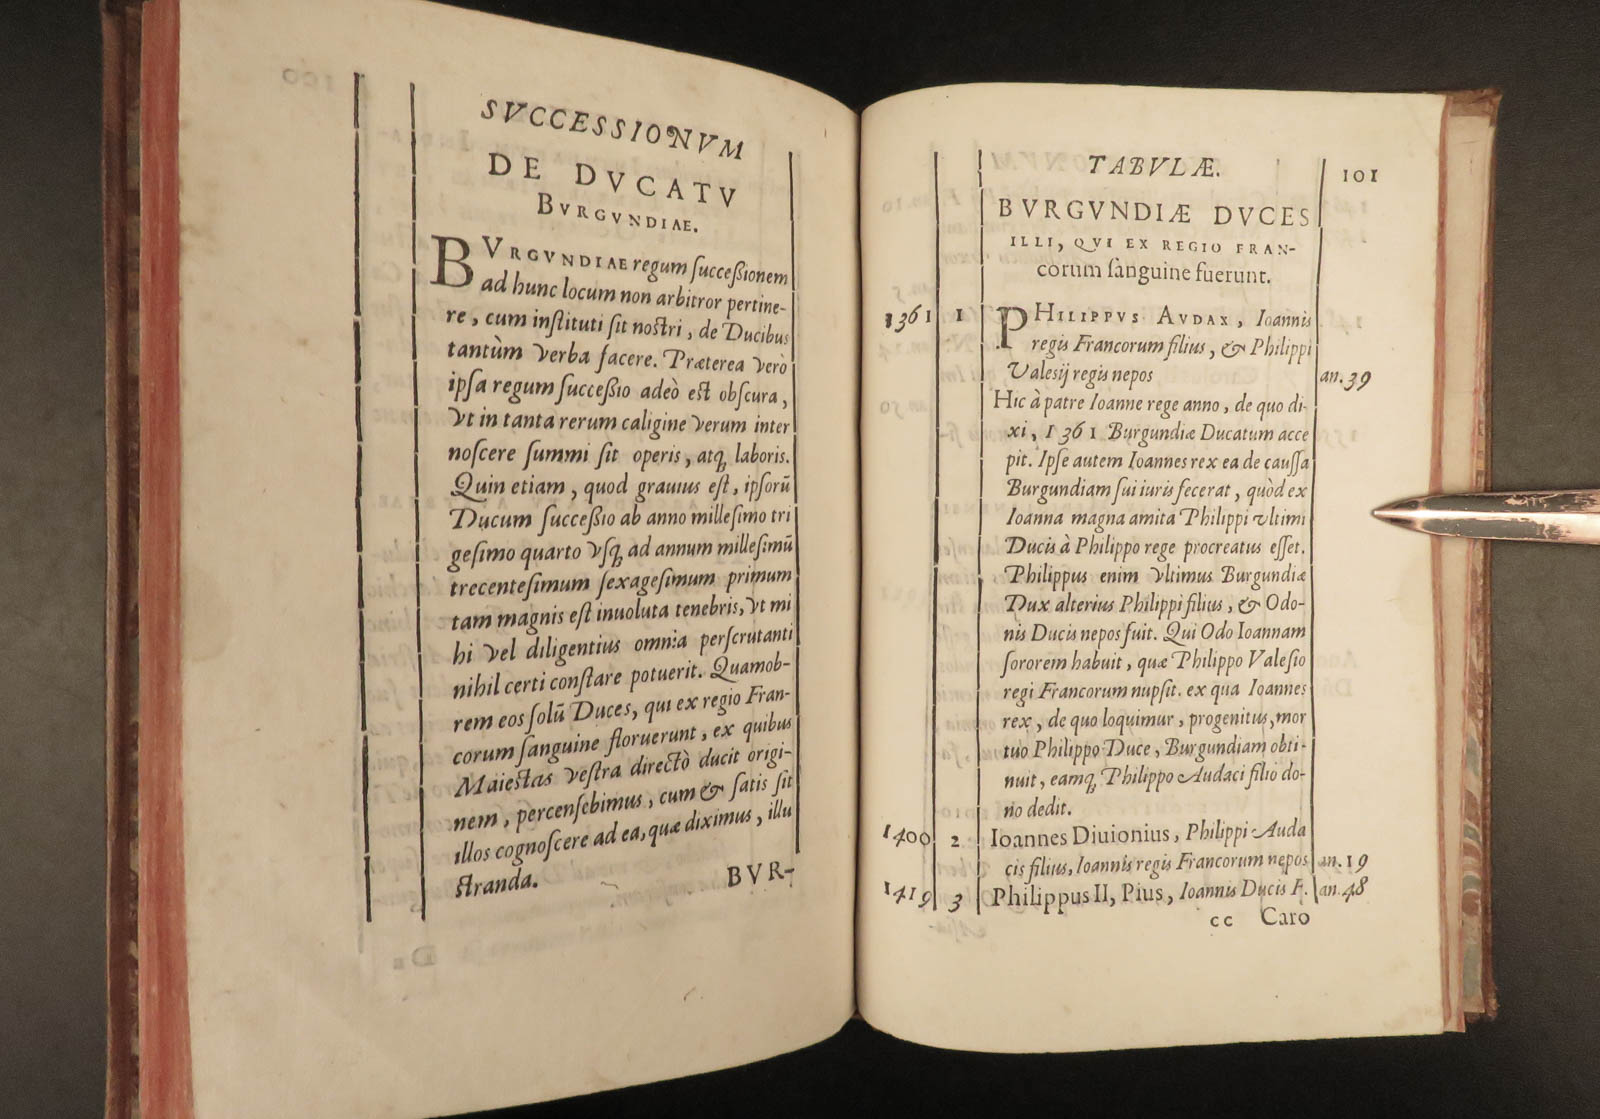 SVCCESSIONVM
DE DVCATV
BVRGVNDIAE.
BVRGVNDIAE regum succeßionem
ad hunc locum non arbitror pertine-
re, cum instituti sit nostri, de Ducibus
tantùm verba facere. Præterea verò
ipsa regum succeßio adeò est obscura,
vt in tanta rerum caligine verum inter
noscere summi sit operis, atq; laboris.
Quin etiam, quod grauius est, ipsorũ
Ducum succeßio ab anno millesimo tri
gesimo quarto vsq; ad annum millesimũ
trecentesimum sexagesimum primum
tam magnis est inuoluta tenebris, vt mi
hi vel diligentius omnia perscrutanti
nihil certi constare potuerit. Quamob-
rem eos solũ Duces, qui ex regio Fran-
corum sanguine floruerunt, ex quibus
Maiestas vestra directò ducit origi-
nem, percensebimus, cum & satis sit
illos cognoscere ad ea, quæ diximus, illu
stranda.
BVR-
TABVLÆ.
101
BVRGVNDIÆ DVCES
ILLI, QVI EX REGIO FRAN-
corum sanguine fuerunt.
1361 1 PHILIPPVS AVDAX, Ioannis
regis Francorum filius, & Philippi
Valesij regis nepos an.39
Hic à patre Ioanne rege anno, de quo di-
xi, 1361 Burgundiæ Ducatum acce
pit. Ipse autem Ioannes rex ea de caussa
Burgundiam sui iuris fecerat, quòd ex
Ioanna magna amita Philippi vltimi
Ducis à Philippo rege procreatus esset.
Philippus enim vltimus Burgundiæ
Dux alterius Philippi filius, & Odo-
nis Ducis nepos fuit. Qui Odo Ioannam
sororem habuit, quæ Philippo Valesio
regi Francorum nupsit. ex qua Ioannes
rex, de quo loquimur, progenitus, mor
tuo Philippo Duce, Burgundiam obti-
nuit, eamq; Philippo Audaci filio do-
no dedit.
1400 2 Ioannes Diuionius, Philippi Auda
cis filius, Ioannis regis Francorum nepos an.19
1419 3 Philippus II, Pius, Ioannis Ducis F. an.48
cc Caro